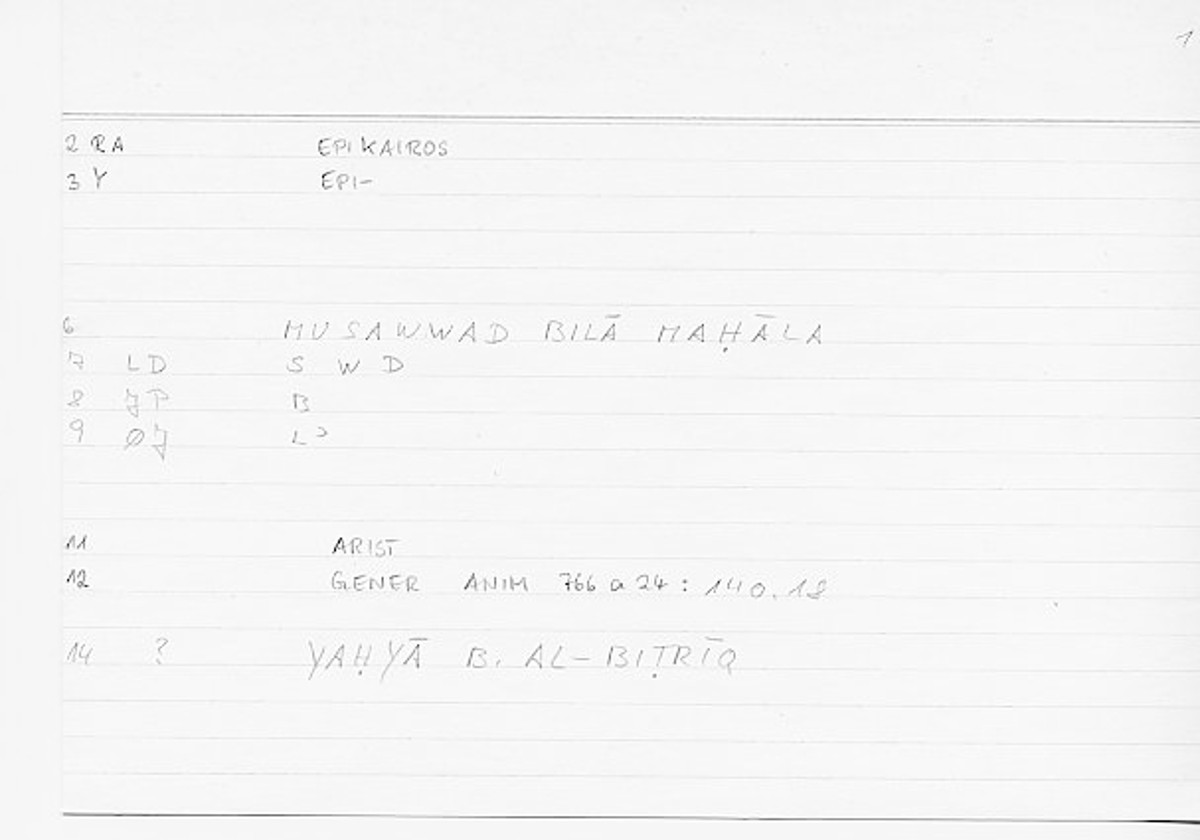 1
2 RA EPIKAIROS
3 Y EPI-
6 MUSAWWAD BILĀ MAḤĀLA
7 LD S W D
8 JP B
9 ØJ Lʾ
11 ARIST
12 GENER ANIM 766 a 24 : 140.18
14 ? YAḤYĀ B. AL-BIṬRĪQ